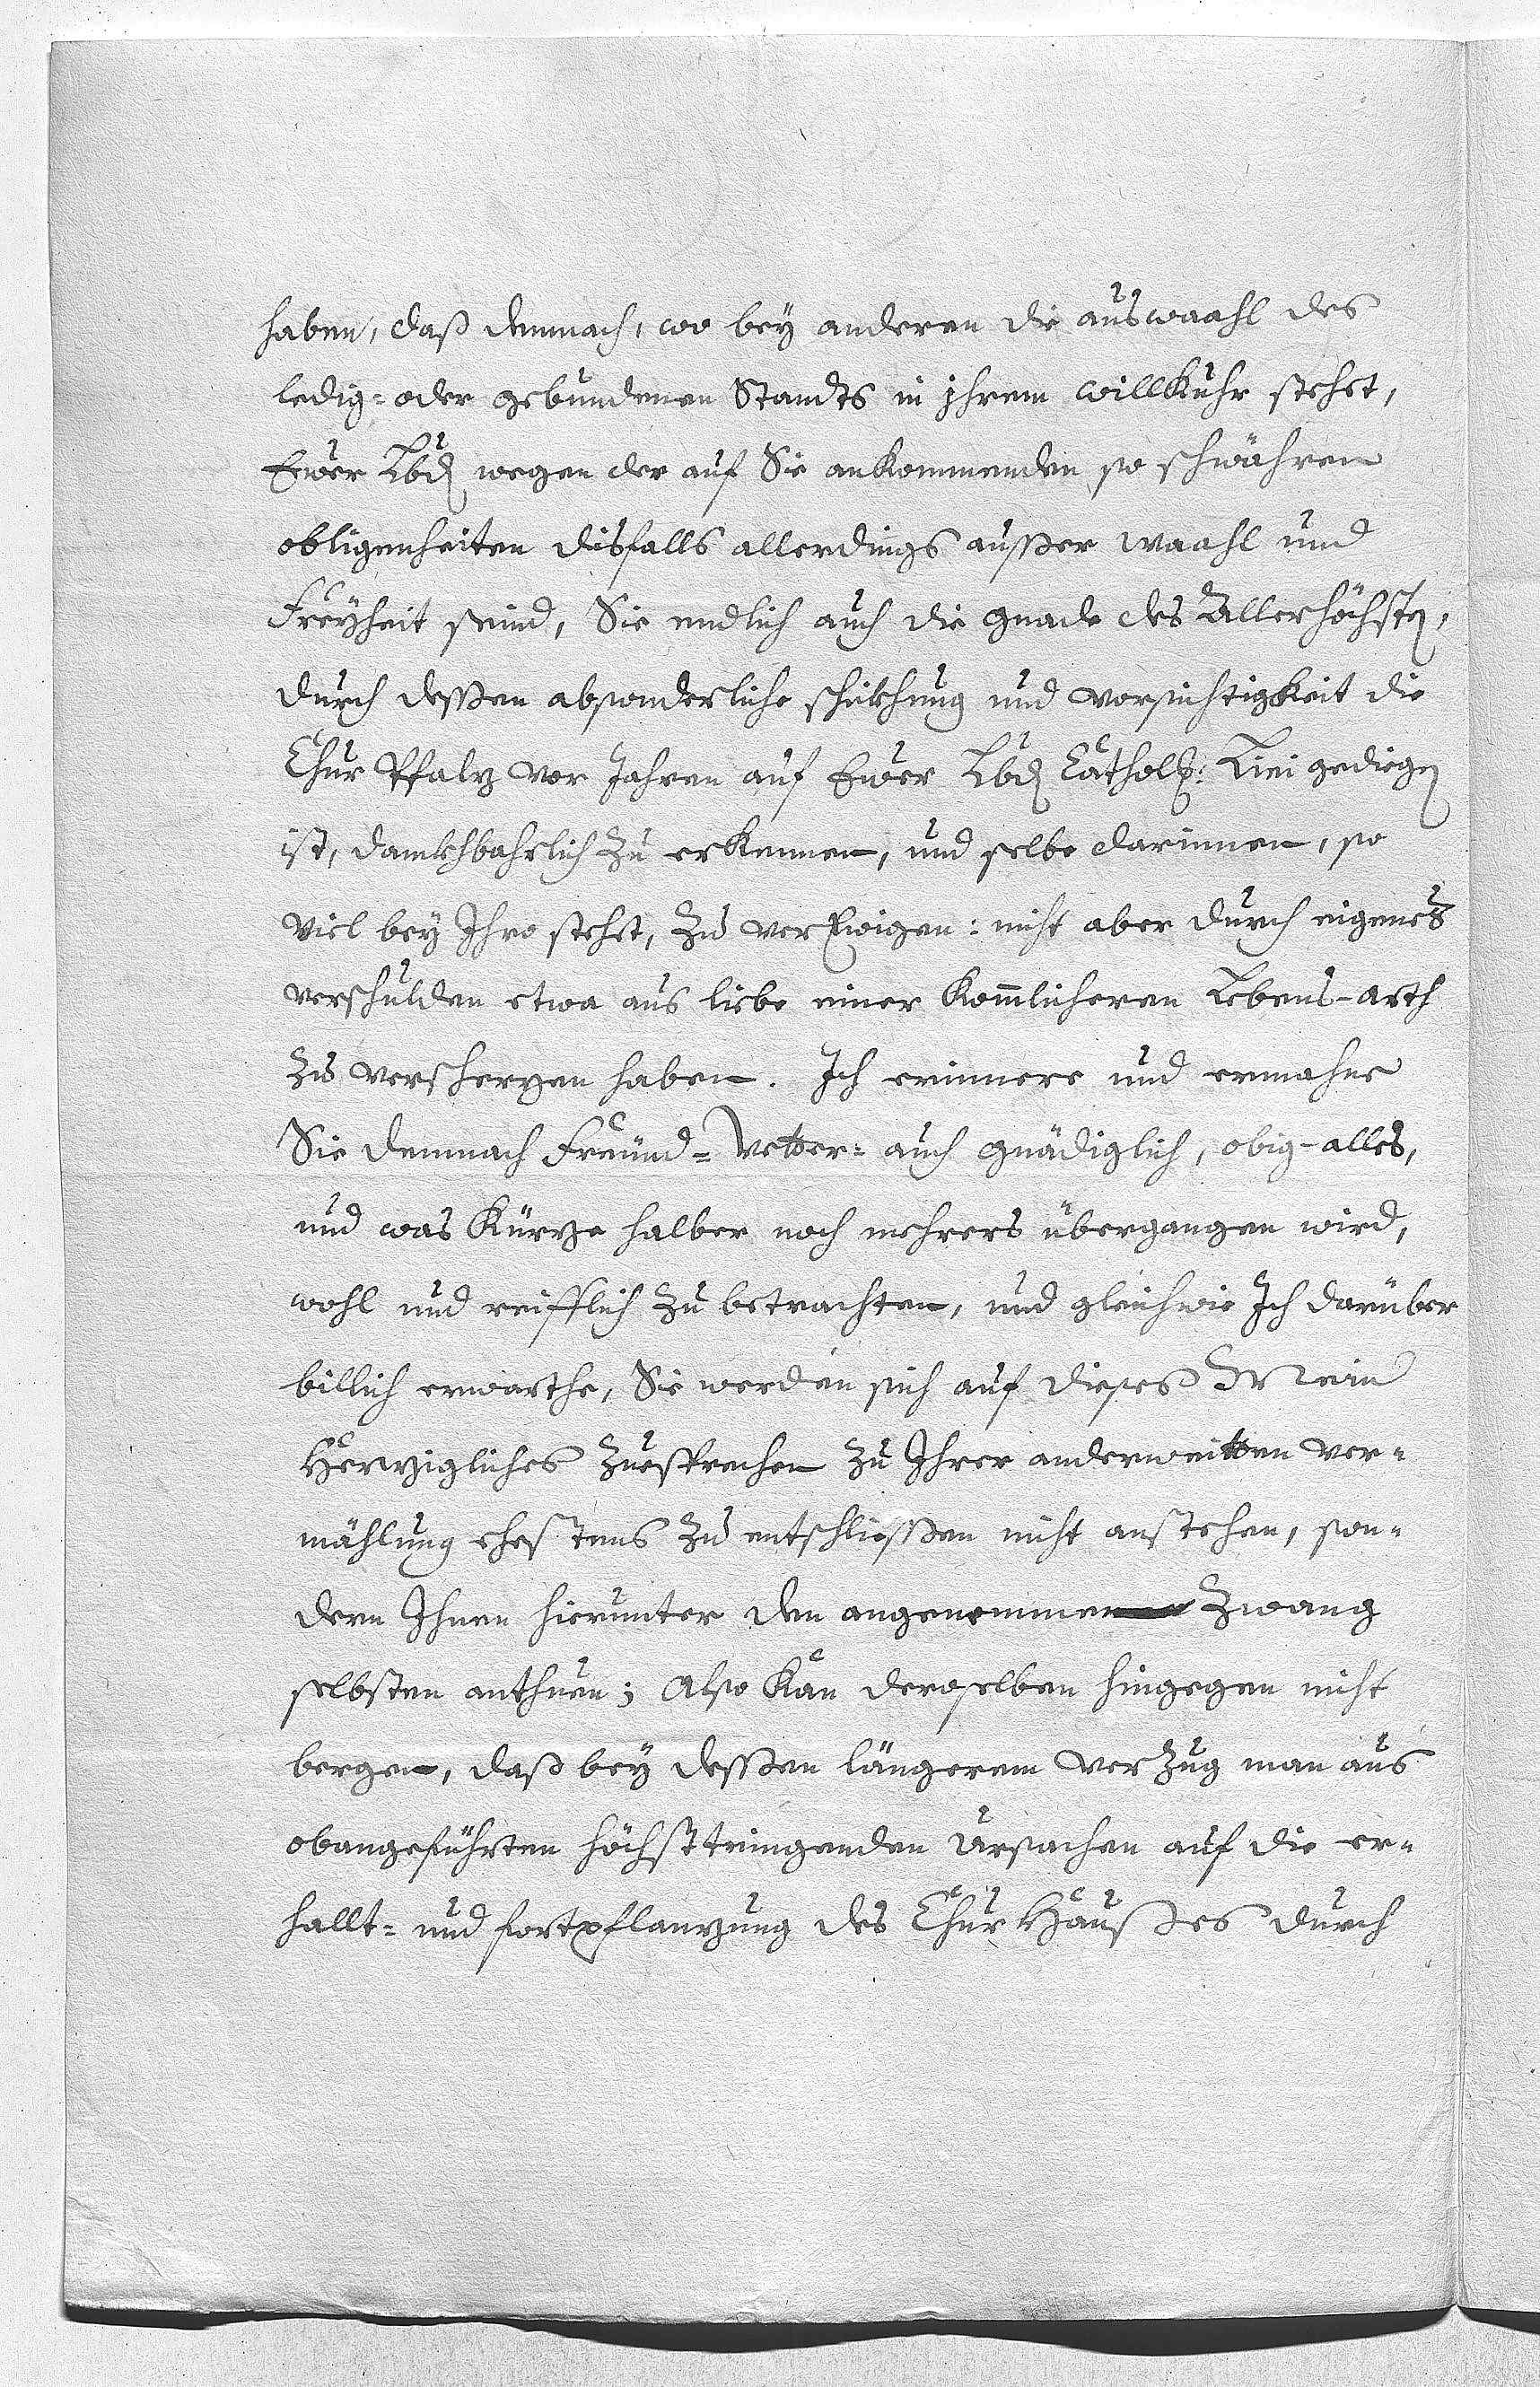 haben, daß demnach, wo bey anderen die auswaahl des
ledig- oder gebundenen Standts in jhrem willkuhr stehet,
Ewer Lbd wegen der auf Sie ankommenden so schwähren
obligenheiten disfalls allerdings ausser waahl und
Freyheit seind, Sie endlich auch die gnade des Allerhöchsten,
durch dessen absonderliche schikhung und vorsichtigkeit die
Chur Pfalz vor Jahren auf Ewer Lbd Cathol: Lini gediegen
ist, dankhbahrlich zu erkennen, und selbe darinnen, so
viel bey Ihro stehet, zu verEwigen: nicht aber durch eigenes
verschulden etwa aus liebe einer komlicheren Lebens-arth
zu verscherzen haben. Ich erinnere und ermahne
Sie demnach Freund- Vetter- auch gnädiglich, obig-alles,
und was Kürze halber noch mehrers übergangen wird,
wohl und reifflich zu betrachten, und gleichwie Ich darüber
billich erwarthe, Sie werden sich auf dieses Mein
Herzigliches Zuesprechen zu Ihrer anderweitten ver-
mählung ehestens zu entschliessen nicht anstehen, son-
dern Ihnen hierunter den angenemmen Zwang
selbsten anthuen; Also kan deroselben hingegen nicht
bergen, daß bey dessen längerem verzug man aus
obangeführten höchsttringenden Ursachen auf die er-
hallt- und fortpflanzung des Chur Hausses durch